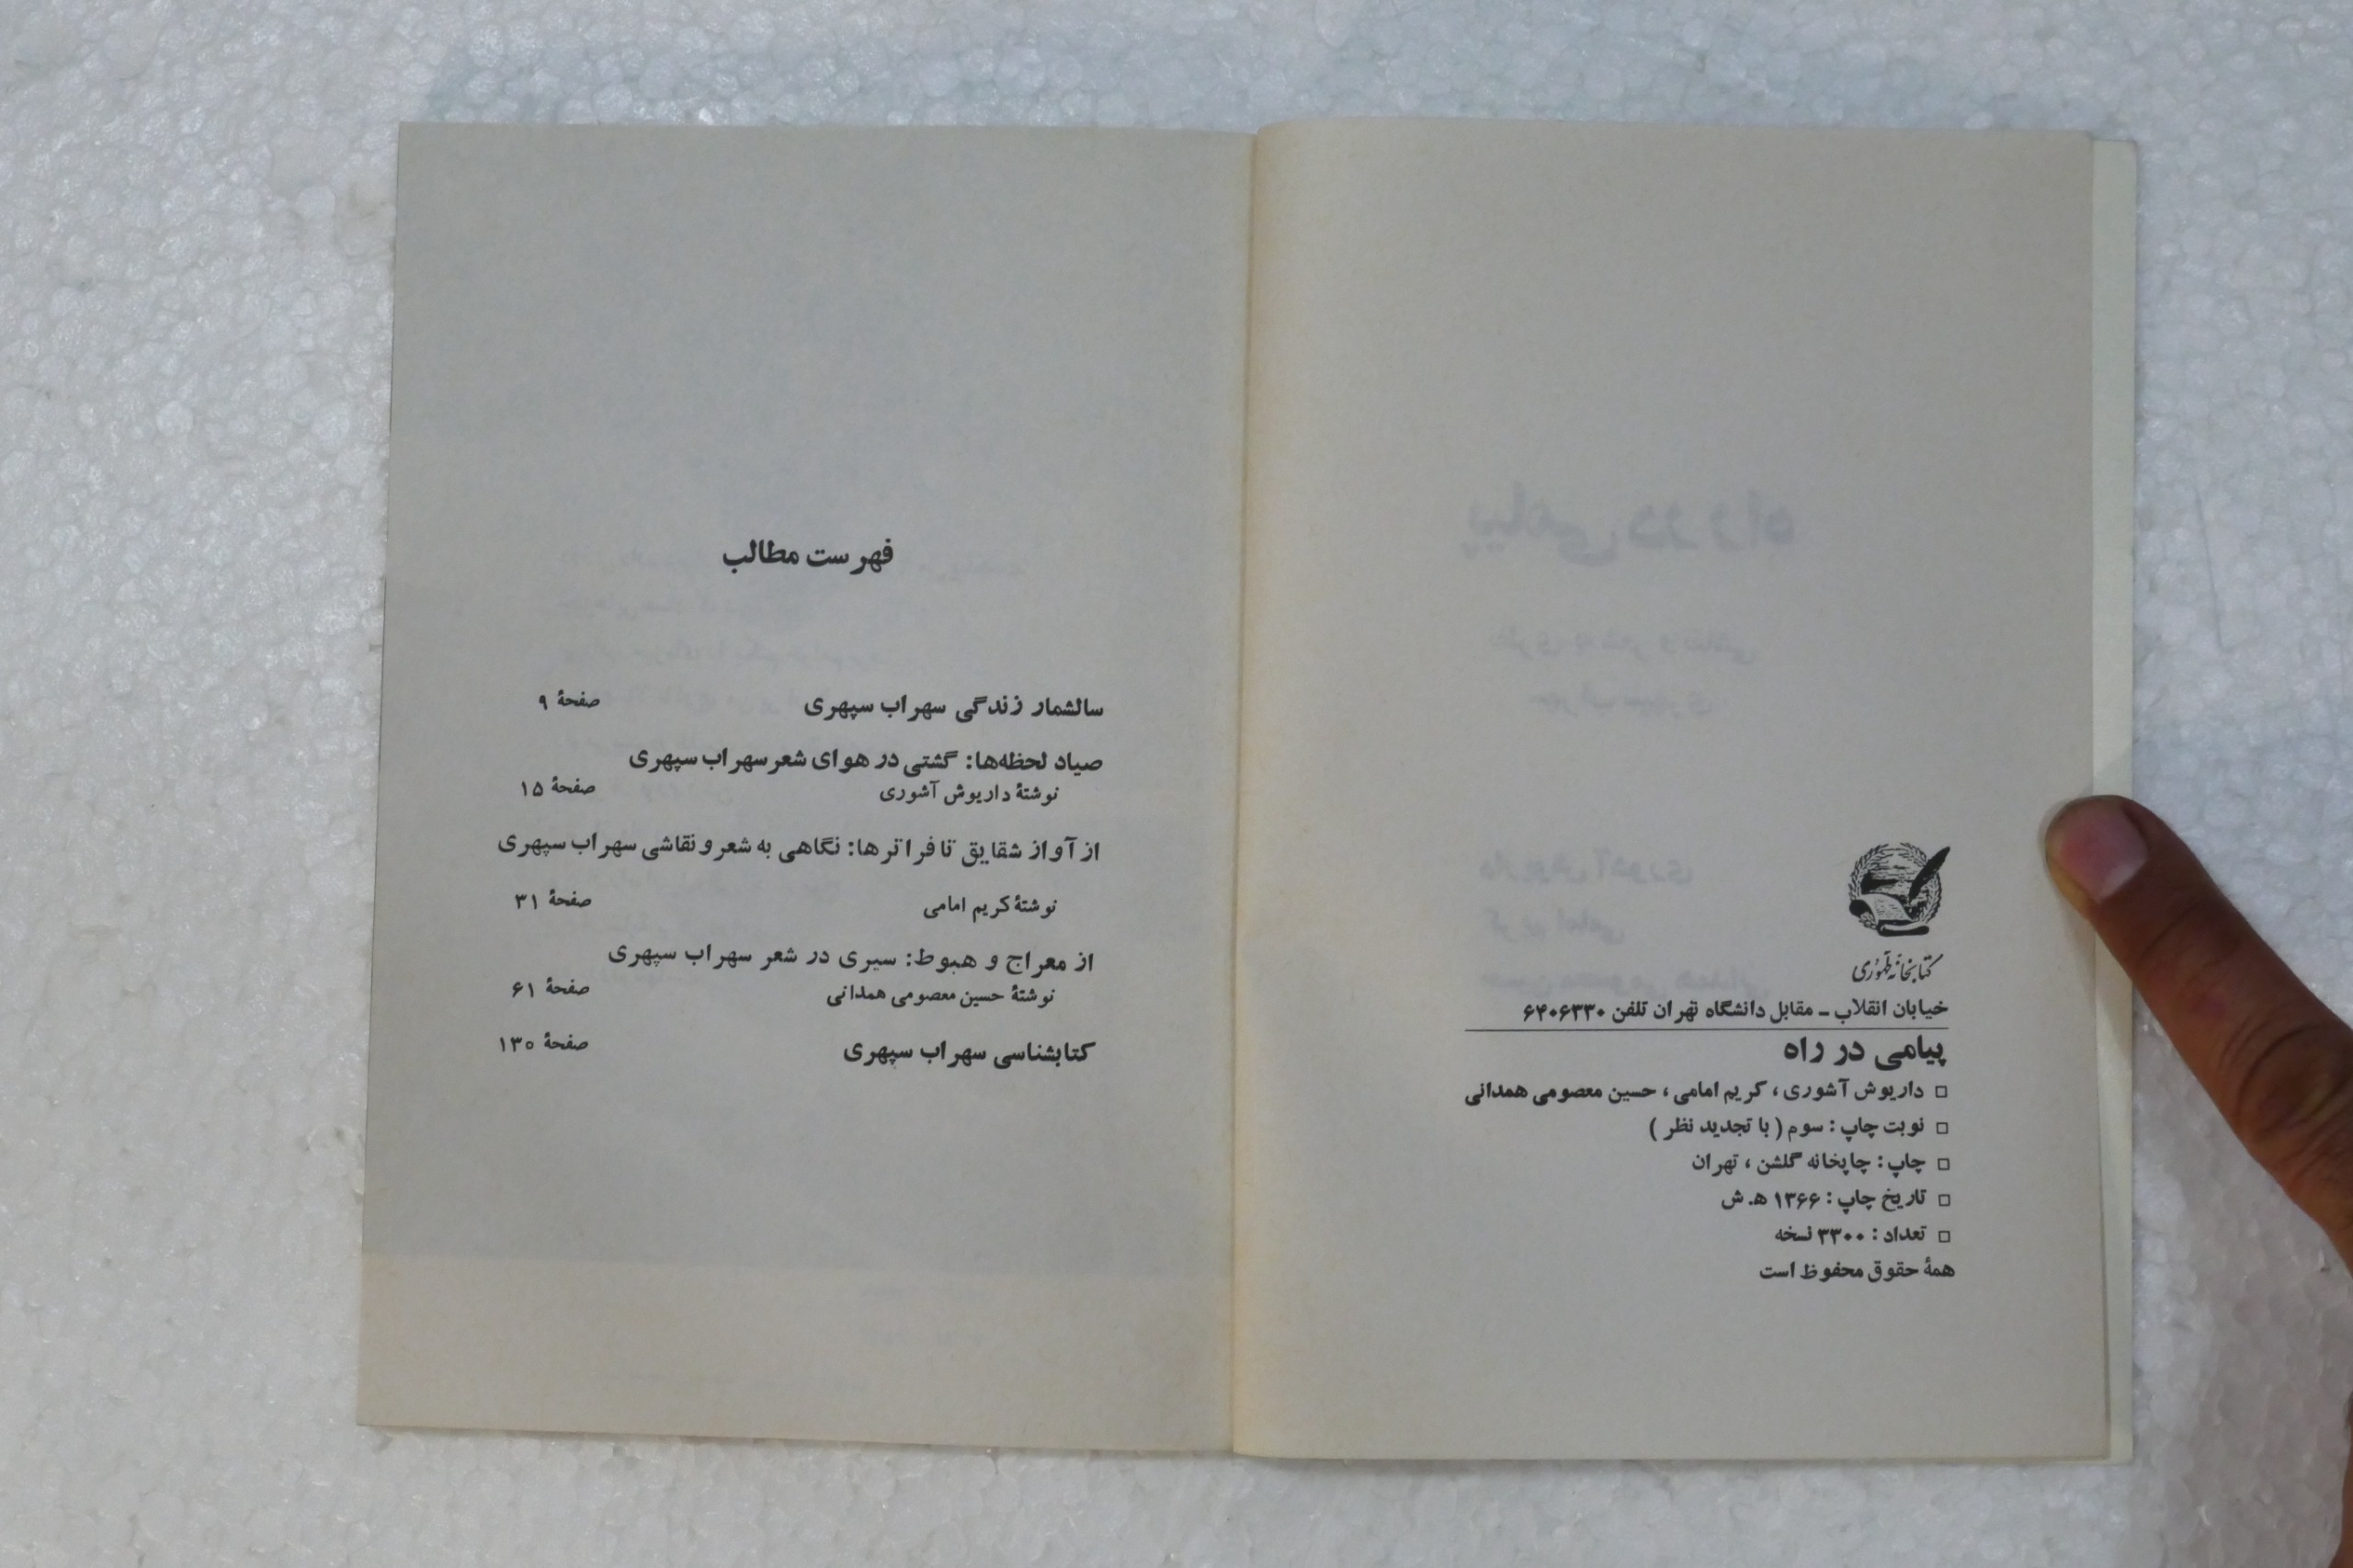 کتابخانه طهوری
خیابان انقلاب ــ مقابل دانشگاه تهران تلفن ۶۴۰۶۳۳۰
پیامی در راه
□ داریوش آشوری، کریم امامی، حسین معصومی همدانی
□ نوبت چاپ: سوم (با تجدید نظر)
□ چاپ: چاپخانه گلشن، تهران
□ تاریخ چاپ: ۱۳۶۶ ه‍. ش
□ تعداد: ۳۳۰۰ نسخه
همهٔ حقوق محفوظ است
فهرست مطالب
سالشمار زندگی سهراب سپهری صفحهٔ ۹
صیاد لحظه‌ها: گشتی در هوای شعر سهراب سپهری
نوشتهٔ داریوش آشوری صفحهٔ ۱۵
از آواز شقایق تا فراترها: نگاهی به شعر و نقاشی سهراب سپهری
نوشتهٔ کریم امامی صفحهٔ ۳۱
از معراج و هبوط: سیری در شعر سهراب سپهری
نوشتهٔ حسین معصومی همدانی صفحهٔ ۶۱
کتابشناسی سهراب سپهری صفحهٔ ۱۳۰